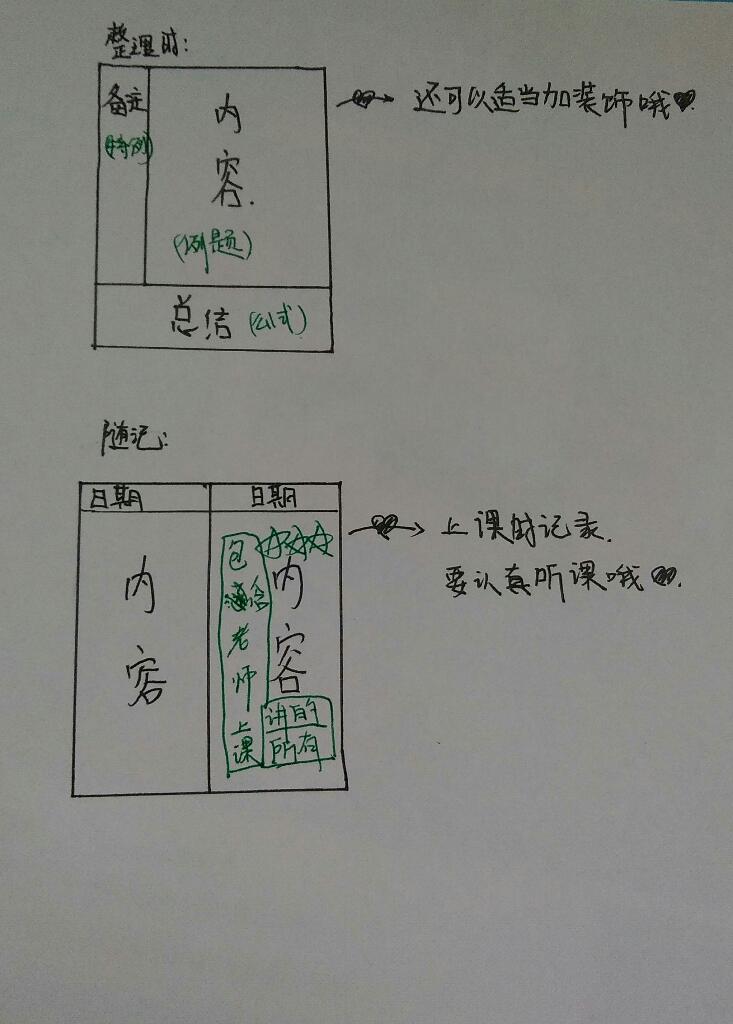 整理时:
备注
(特例)
内
容.
(例题)
总结 (公式)
还可以适当加装饰哦
随记:
日期
内
容
日期
内
容
包
含
老
师
上
课
讲的
所有
上课时记录.
要认真听课哦